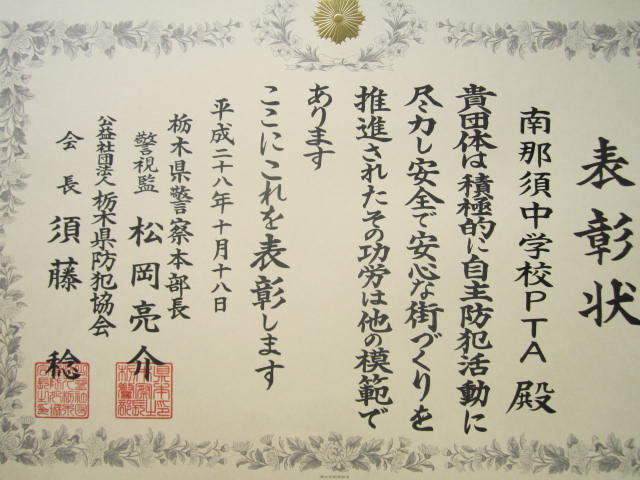 表彰状
南那須中学校PTA殿
貴団体は積極的に自主防犯活動に
尽力し安全で安心な街づくりを
推進されたその功労は他の模範で
あります
ここにこれを表彰します
平成二十八年十月十八日
栃木県警察本部長
警視監 松岡亮介
公益社団法人 栃木県防犯協会
会長 須藤稔